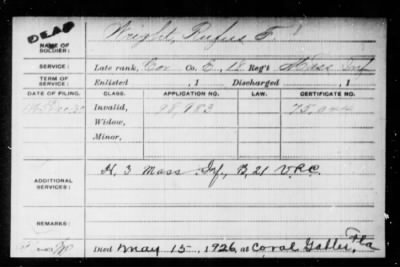 DEAD
NAME OF SOLDIER: Wright, Rufus F.
SERVICE: Late rank, Cor Co. E, 18 Reg't Mass Inf
TERM OF SERVICE: Enlisted , 1 Discharged , 1
DATE OF FILING. CLASS. APPLICATION NO. LAW. CERTIFICATE NO.
Invalid, 98,983
Widow,
Minor,
ADDITIONAL SERVICES: H, 3 Mass Inf, B, 21 V.R.C.
REMARKS:
Died May 15, 1926, at Coral Gables, Fla